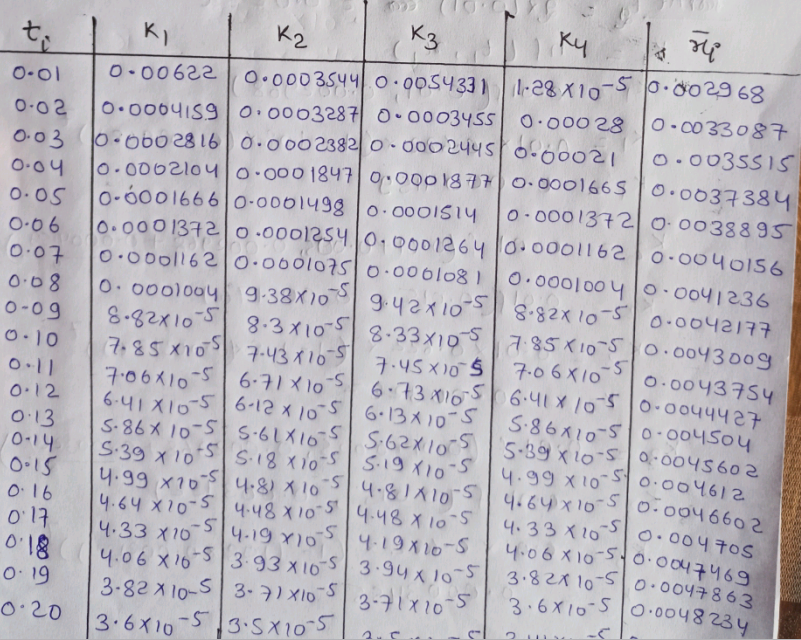 ti K1 K2 K3 K4 r̄i
0.01 0.00622 0.0003544 0.0054331 1.28×10-5 0.002968
0.02 0.0004159 0.0003287 0.0003455 0.00028 0.0033087
0.03 0.0002816 0.0002382 0.0002445 0.00021 0.0035515
0.04 0.0002104 0.0001847 0.0001877 0.0001665 0.0037384
0.05 0.0001666 0.0001498 0.0001514 0.0001372 0.0038895
0.06 0.0001372 0.0001254 0.0001264 0.0001162 0.0040156
0.07 0.0001162 0.0001075 0.0001081 0.0001004 0.0041236
0.08 0.0001004 9.38×10-5 9.42×10-5 8.82×10-5 0.0042177
0.09 8.82×10-5 8.3×10-5 8.33×10-5 7.85×10-5 0.0043009
0.10 7.85×10-5 7.43×10-5 7.45×10-5 7.06×10-5 0.0043754
0.11 7.06×10-5 6.71×10-5 6.73×10-5 6.41×10-5 0.0044427
0.12 6.41×10-5 6.12×10-5 6.13×10-5 5.86×10-5 0.004504
0.13 5.86×10-5 5.61×10-5 5.62×10-5 5.39×10-5 0.0045602
0.14 5.39×10-5 5.18×10-5 5.19×10-5 4.99×10-5 0.004612
0.15 4.99×10-5 4.81×10-5 4.81×10-5 4.64×10-5 0.0046602
0.16 4.64×10-5 4.48×10-5 4.48×10-5 4.33×10-5 0.004705
0.17 4.33×10-5 4.19×10-5 4.19×10-5 4.06×10-5 0.0047469
0.18 4.06×10-5 3.93×10-5 3.94×10-5 3.82×10-5 0.0047863
0.19 3.82×10-5 3.71×10-5 3.71×10-5 3.6×10-5 0.0048234
0.20 3.6×10-5 3.5×10-5